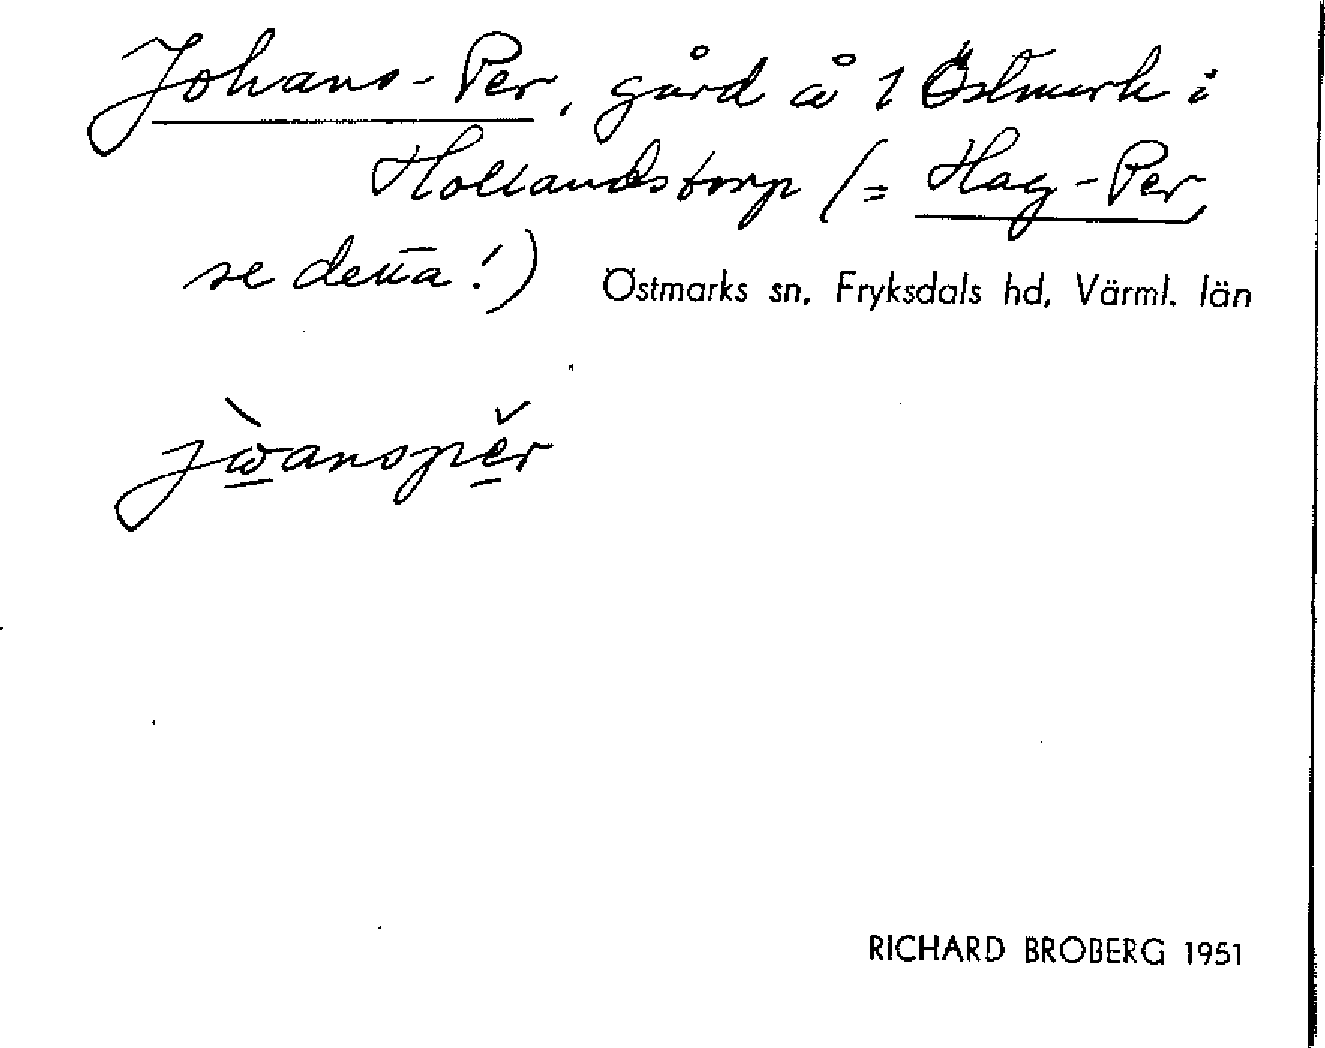 Johans-Per, gård å 1 Östmark i
Hollandstorp (= Hag-Per,
se detta!)
Östmarks sn, Fryksdals hd, Värml. län
jὼ̲anspě̲r
RICHARD BROBERG 1951